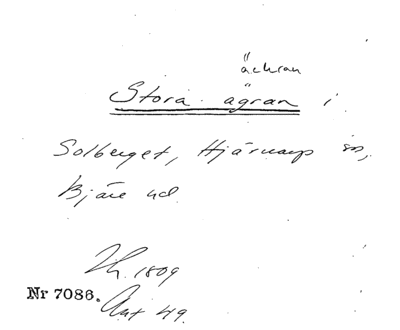 äckran
Stora ägran i
Solberget, Hjärnarp sn,
Bjäre hd
Lh. 1809
Nr 7086. Akt 49.